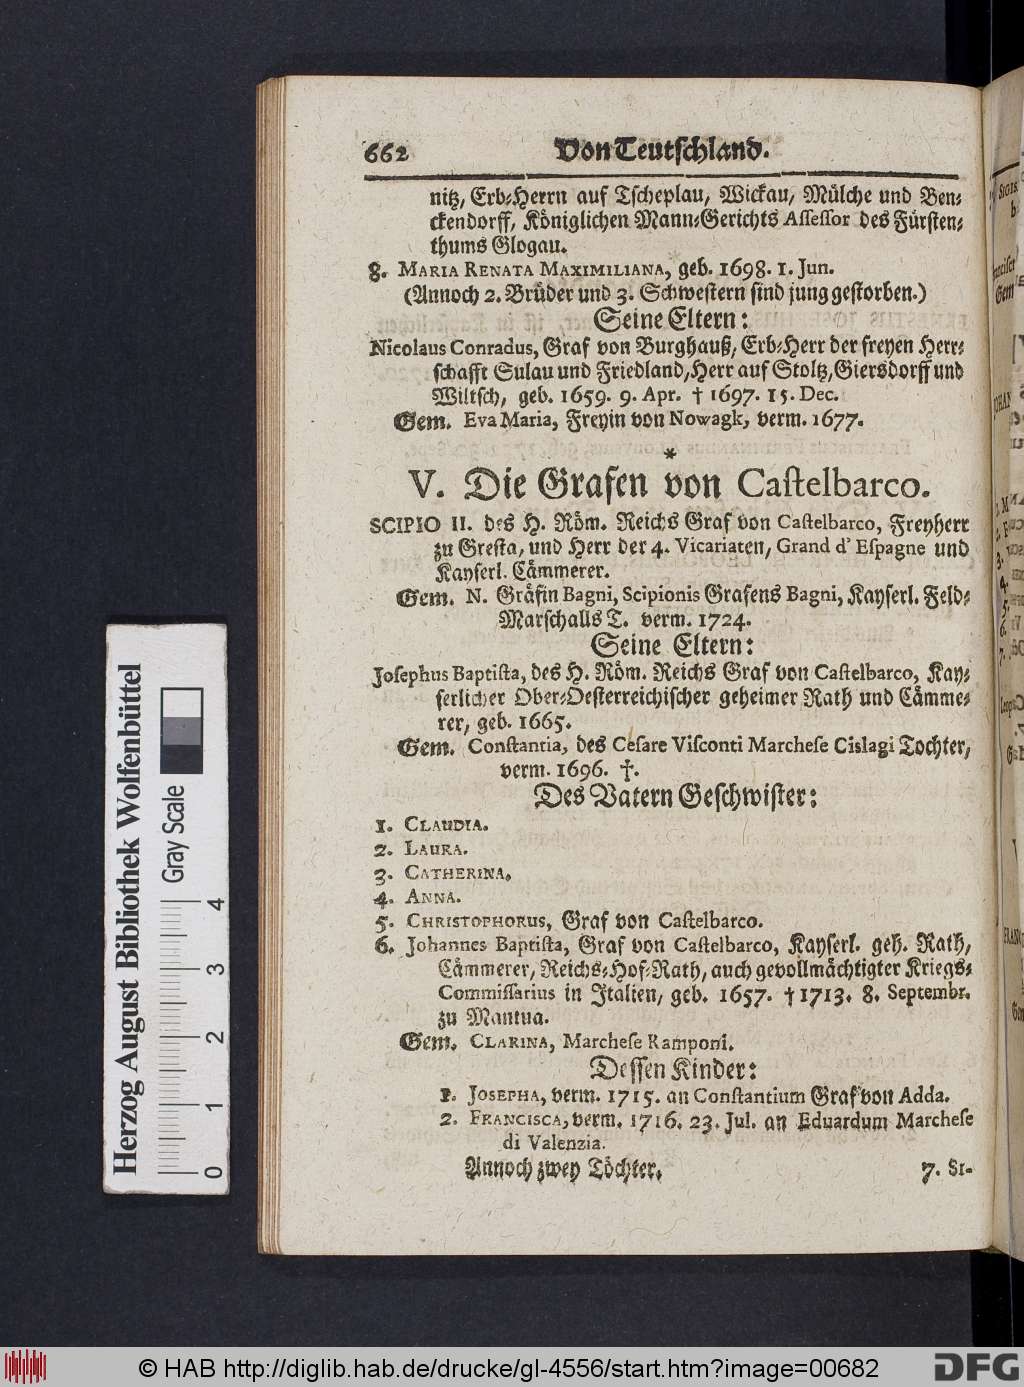 662 Von Teutschland.
nitz, Erb-Herrn auf Tscheplau, Wickau, Mülche und Ben-
ckendorff, Königlichen Mann-Gerichts Assessor des Fürsten-
thums Glogau.
8. MARIA RENATA MAXIMILIANA, geb. 1698. 1. Jun.
(Annoch 2. Brüder und 3. Schwestern sind jung gestorben.)
Seine Eltern:
Nicolaus Conradus, Graf von Burghauß, Erb-Herr der freyen Herr-
schafft Sulau und Friedland, Herr auf Stoltz, Giersdorff und
Wiltsch, geb. 1659. 9. Apr. † 1697. 15. Dec.
Gem. Eva Maria, Freyin von Nowagk, verm. 1677.
*
V. Die Grafen von Castelbarco.
SCIPIO II. des H. Röm. Reichs Graf von Castelbarco, Freyherr
zu Gresta, und Herr der 4. Vicariaten, Grand d' Espagne und
Kayserl. Cämmerer.
Gem. N. Gräfin Bagni, Scipionis Grafens Bagni, Kayserl. Feld-
Marschalls T. verm. 1724.
Seine Eltern:
Josephus Baptista, des H. Röm. Reichs Graf von Castelbarco, Kay-
serlicher Ober-Oesterreichischer geheimer Rath und Cämme-
rer, geb. 1665.
Gem. Constantia, des Cesare Visconti Marchese Cislagi Tochter,
verm. 1696. †.
Des Vatern Geschwister:
1. CLAUDIA.
2. LAURA.
3. CATHERINA.
4. ANNA.
5. CHRISTOPHORUS, Graf von Castelbarco.
6. Johannes Baptista, Graf von Castelbarco, Kayserl. geh. Rath,
Cämmerer, Reichs-Hof-Rath, auch gevollmächtigter Kriegs-
Commissarius in Italien, geb. 1657. † 1713. 8. Septembr.
zu Mantua.
Gem. CLARINA, Marchese Ramponi.
Dessen Kinder:
1. JOSEPHA, verm. 1715. an Constantium Graf von Adda.
2. FRANCISCA, verm. 1716. 23. Jul. an Eduardum Marchese
di Valenzia.
Annoch zwey Töchter. 7. SI-
Herzog August Bibliothek Wolfenbüttel
Gray Scale
0 1 2 3 4
© HAB http://diglib.hab.de/drucke/gl-4556/start.htm?image=00682
DFG